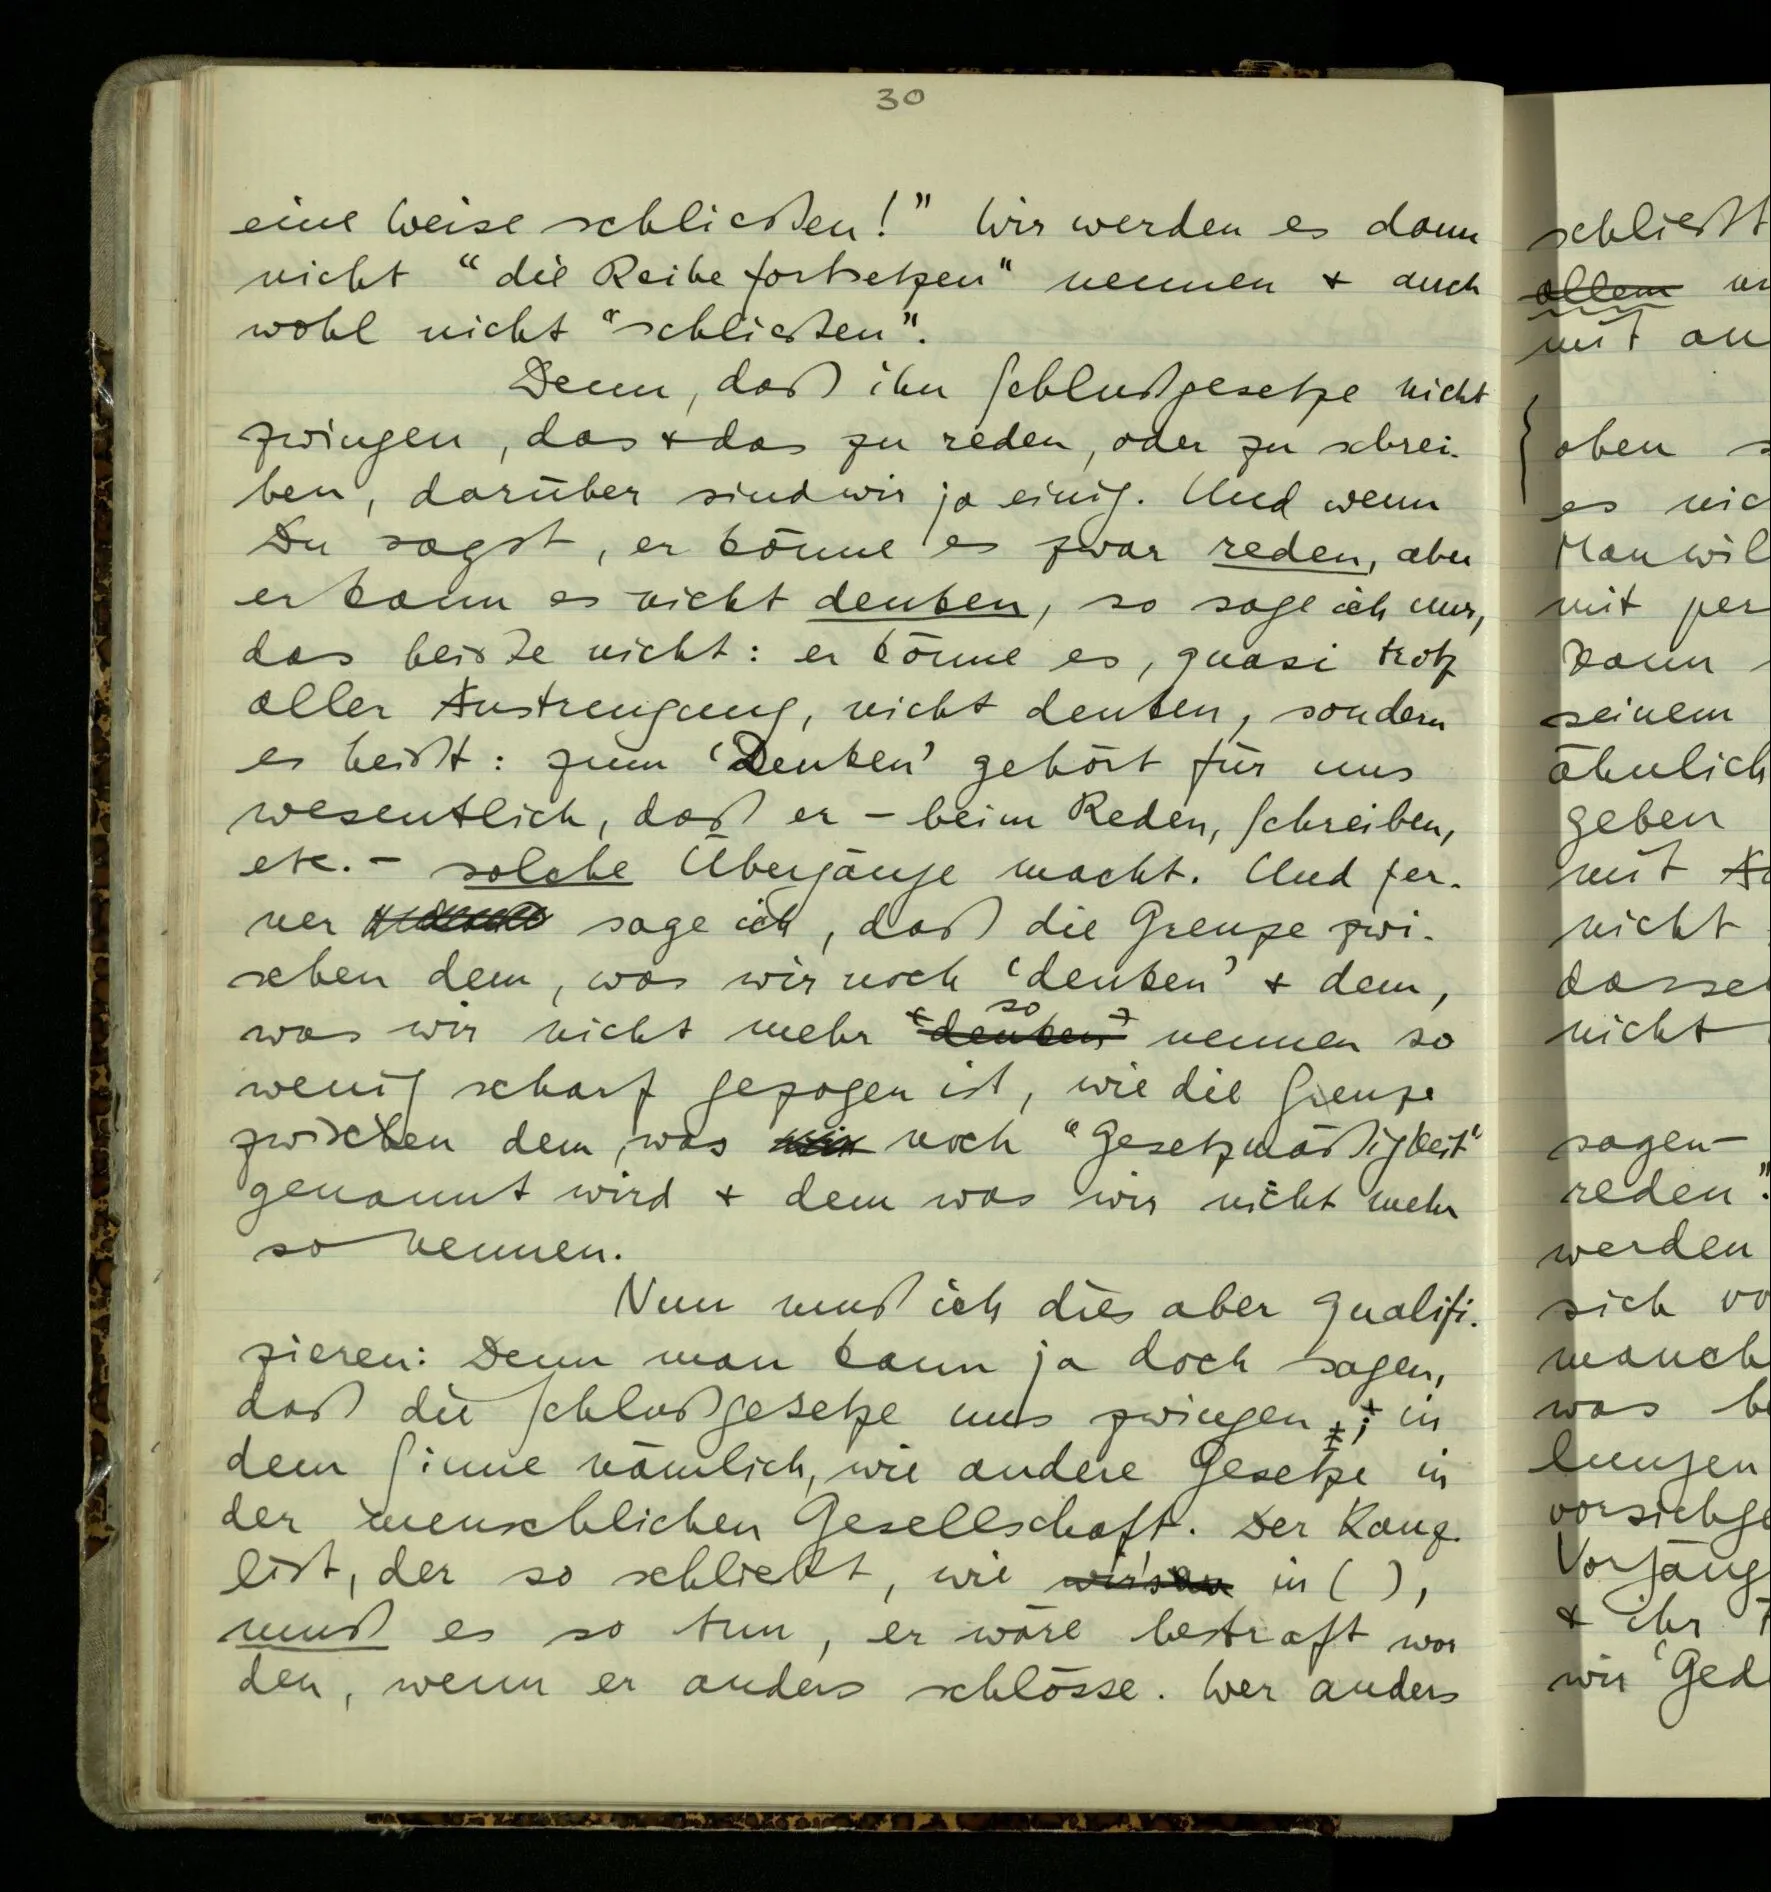 30
eine Weise schließen!" Wir werden es dann
nicht "die Reihe fortsetzen" nennen & auch
wohl nicht "schließen".
Denn, daß ihn Schlußgesetze nicht
zwingen, das & das zu reden, oder zu schrei-
ben, darüber sind wir ja einig. Und wenn
Du sagst, er könne es zwar reden, aber
er kann es nicht denken, so sage ich nur,
das heiße nicht: er könne es, quasi trotz
aller Anstrengung, nicht denken, sondern
es heißt: zum 'Denken' gehört für uns
wesentlich, daß er – beim Reden, Schreiben,
etc. – solche Übergänge macht. Und fer-
ner sage ich, daß die Grenze zwi-
schen dem, was wir noch 'denken' & dem,
so
was wir nicht mehr 'denken' nennen so
wenig scharf gezogen ist, wie die Grenze
zwischen dem, was wir noch "Gesetzmäßigkeit"
genannt wird & dem was wir nicht mehr
so nennen.
Nun muß ich dies aber qualifi-
zieren: Denn man kann ja doch sagen,
daß die Schlußgesetze uns zwingen; in
dem Sinne nämlich, wie andere Gesetze in
der menschlichen Gesellschaft. Der Kanz-
list, der so schließt, wie in ( ),
muß es so tun, er wäre bestraft wor
den, wenn er anders schlösse. Wer anders
schließt
allem
mit
oben
es
Man
mit
kann
seinem
ähnlich
geben
mit
nicht
nicht
sagen –
reden".
werden
sich
was
& ihr
wir